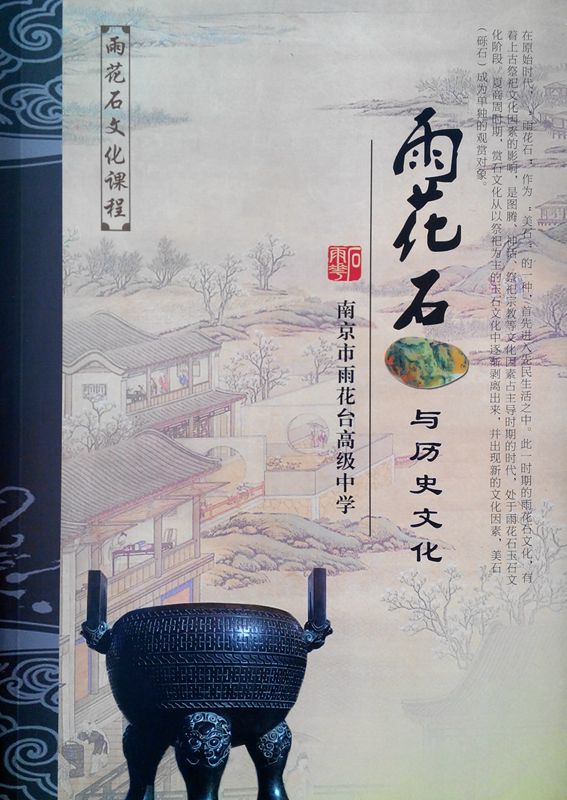 在原始时代，“雨花石”作为“美石”的一种，首先进入先民生活之中。此一时期的雨花石文化，有
着上古祭祀文化因素的影响，是图腾、神话、祭祀宗教等文化因素占主导时期的时代，处于雨花石玉石文
化阶段。夏商周时期，赏石文化从以祭祀为主的玉石文化中逐渐剥离出来，并出现新的文化因素，美石
（砾石）成为单独的观赏对象。
雨花石
与历史文化
石
雨花
南京市雨花台高级中学
雨花石文化课程